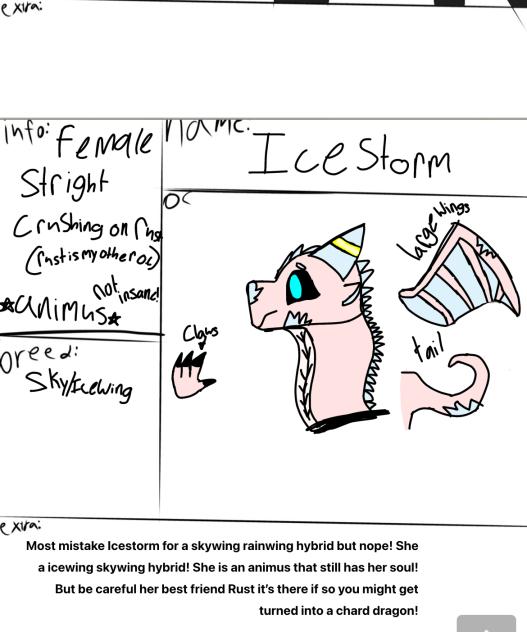 extra:
info: Female
Stright
Crushing on Rust
(rust is my other oc)
not insane!
★animus★
Name:
Icestorm
OC
Large Wings
Claws
tail
breed:
Sky/Icewing
extra:
Most mistake Icestorm for a skywing rainwing hybrid but nope! She
a icewing skywing hybrid! She is an animus that still has her soul!
But be careful her best friend Rust it’s there if so you might get
turned into a chard dragon!